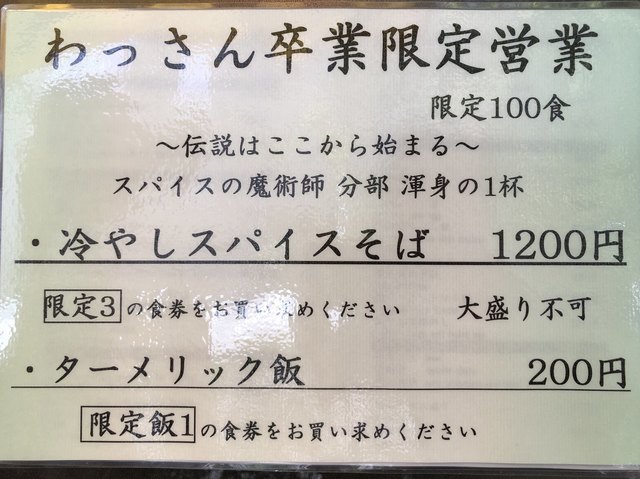 わっさん卒業限定営業
限定100食
～伝説はここから始まる～
スパイスの魔術師 分部 渾身の1杯
・冷やしスパイスそば 1200円
限定3の食券をお買い求めください 大盛り不可
・ターメリック飯 200円
限定飯1の食券をお買い求めください